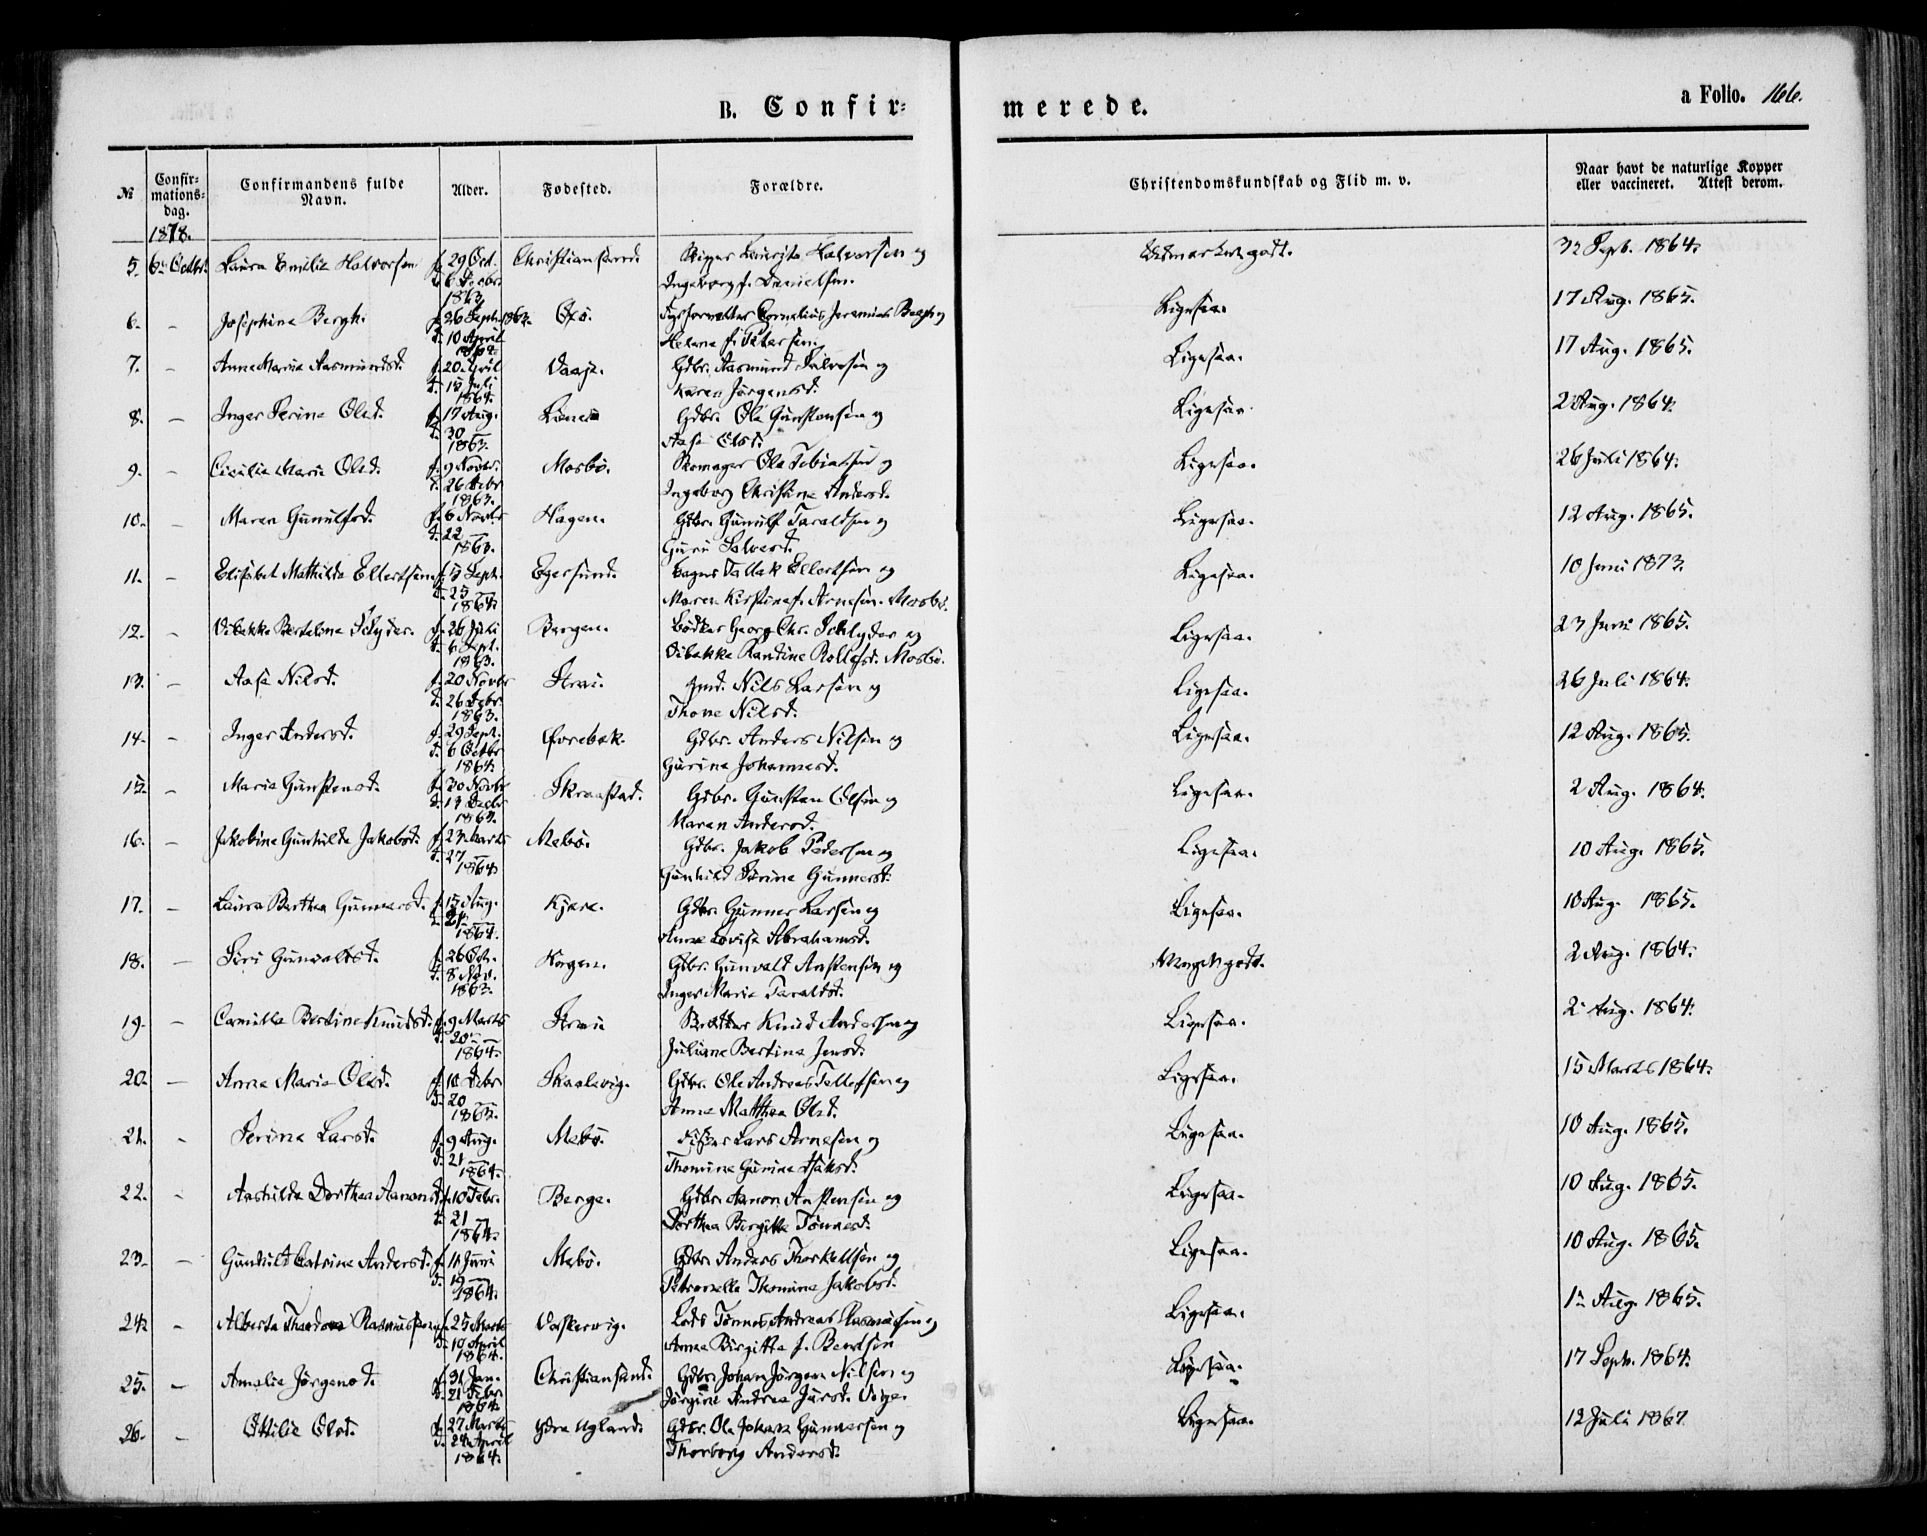 B. Confir-
merede.
a Folio. 166.
№
Confir-
mations-
dag.
Confirmandens fulde
Navn.
Alder.
Fødested.
Forældre.
Christendomskundskab og Flid m. v.
Naar havt de naturlige Kopper
eller vaccineret. Attest derom.
1878.
5. 6 Octbr. Laura Emilie Halvorsen f. 29 Oct. Christianssand. Halvorsen og Udmærket godt. Sept. 1864.
d. 6 Decbr. Ingeborg f. Danielsen.
1863
6. – Josephine Bergh. f. 26 Septr. 1863. Oxø. Cornelius Jeremias Bergh og Ligesaa. 17 Aug. 1865.
d. 10 April Helene f. Petersen.
1864.
7. – Anne Marie Aasmundsd. f. 20 April Vaaje. Gdbr. Aasmund Salvesen og Ligesaa. 17 Aug. 1865.
d. 15 Juli Karen Jørgensd.
1864.
8. – Inger Serine Olsd. f. 17 Aug. Gdbr. Ole Gunstensen og Ligesaa. 2 Aug. 1864.
d. 30 – Aase Olsd.
1863.
9. – Cecilie Marie Olsd. f. 9 Novbr. Mosbø. Skomager Ole Tobiassen og Ligesaa. 26 Juli 1864.
d. 26 Debr. Ingeborg Christine Andersd.
1863.
10. – Maren Gunulfsd. f. 6 Novbr Hagen. Gdbr. Gunulf Taraldsen og Ligesaa. 12 Aug. 1865.
d. 22 – Guru Salvesd.
1863.
11. – Elisabet Mathilde Ellertsen f. 13 Septr. Egersund. Tallak Ellertsen og Ligesaa. 10 Juni 1873.
d. 25 – Maren Kirstine f. Arnesen. Mosbø.
1864.
12. – Vibekke Schlyder. f. 26 Juli Bergen. Bødker Georg Chr. Schlyder og Ligesaa. 23 Juni 1865.
d. 6 Sept. Vibekke Randine Rolfsd. Mosbø.
1863.
13. – Aase Nilsd. f. 20 Novbr Strai. Nils Larsen og Ligesaa. 26 Juli 1864.
d. 26 Debr. Thone Nilsd.
1863.
14. – Inger Andersd. f. 29 Sept. Øvrebøk. Gdbr. Anders Nilsen og Ligesaa. 12 Aug. 1865.
d. 6 Octbr Gurine Johannesd.
1864.
15. – Marie Gunstensd. f. 30 Novbr Skraastad. Gdbr. Gunsten Olsen og Ligesaa. 2 Aug. 1864.
d. 13 Decbr Maren Andersd.
16. – Jakobine Gunhilde Jakobsd. f. 23 Marts Mebø. Gdbr. Jakob Pedersen og Ligesaa. 10 Aug. 1865.
d. 27 – Gunhild Serine Gunnersd.
1864.
17. – Laura Berthea Gunnersd. f. 15 Aug. Kjære. Gdbr. Gunner Larsen og Ligesaa. 10 Aug. 1865.
d. 21 – Anne Lovise Abrahamsd.
1864.
18. – Siri Gunvaldsd. f. 26 Oct. Gdbr. Gunvald Anstensen og Meget godt. 2 Aug. 1864.
d. 8 Nov. Inger Marie Taraldsd.
1863.
19. – Camilla Bertine Knudsd. f. 9 Marts Strai Knud Andersen og Ligesaa. 2 Aug. 1864.
d. 20 – Juliane Bertine Jensd.
1864.
20. – Anne Marie Olsd. f. 10 Debr Skaalevig. Gdbr. Ole Andreas Tellefsen og Ligesaa. 15 Marts 1864.
d. 20 Anne Matthea Olsd.
1863.
21. – Serine Larsd. f. 9 Aug. Mebø. Fisker Lars Arnesen og Ligesaa. 10 Aug. 1865.
d. 21 – Thomine Gurine Isaksd.
1864.
22. – Aashilde Dorthea Aanonsd. f. 10 Febr. Berge. Gdbr. Aanon Anstensen og Ligesaa. 10 Aug. 1865.
d. 21 – Dorthea Birgitte Tønnesd.
1864.
23. – Gunhild Catrine Andersd. f. 11 Juni Mebø. Gdbr. Anders Thorkellsen og Ligesaa. 10 Aug. 1865.
d. 19 – Petronelle Thomine Jakobsd.
1864.
24. – Alberta Theodora Rasmussen f. 25 Marts Vaskervig. Lods Tønnes Andreas Rasmussen og Ligesaa. 1 Aug. 1865.
d. 19 April Anna Birgitte f. Bendsen
1864.
25. – Amalie Jørgensd. f. 31 Jan. Christianssand. Gdbr. Johan Jørgen Nilsen og Ligesaa. 17 Septr. 1864.
d. 21 Febr. Jørgine Andrea
1864.
26. – Ottilie Olsd. f. 27 Marts Ydre Ugland. Gdbr. Ole Johan Gunnersen og Ligesaa. 12 Juli 1867
d. 24 April Thorborg Andersd.
1864.